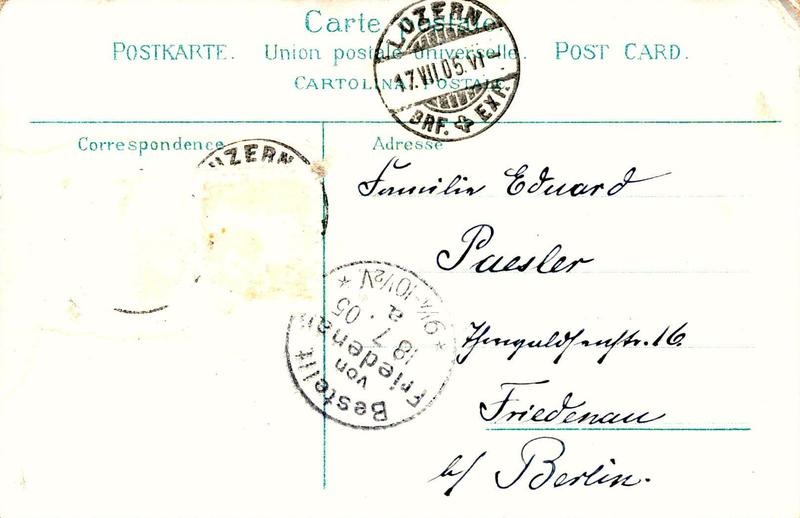 Carte postale
POSTKARTE. Union postale universelle. POST CARD.
CARTOLINA POSTALE
LUZERN
17.VII.05.VI-
BRF. EXP.
Correspondence
Adresse
LUZERN
Familie Eduard
Paesler
16.
Friedenau
b/ Berlin.
Bestellt
von
Friedenau
18 7.05
a.
* 9¼-10½V. *